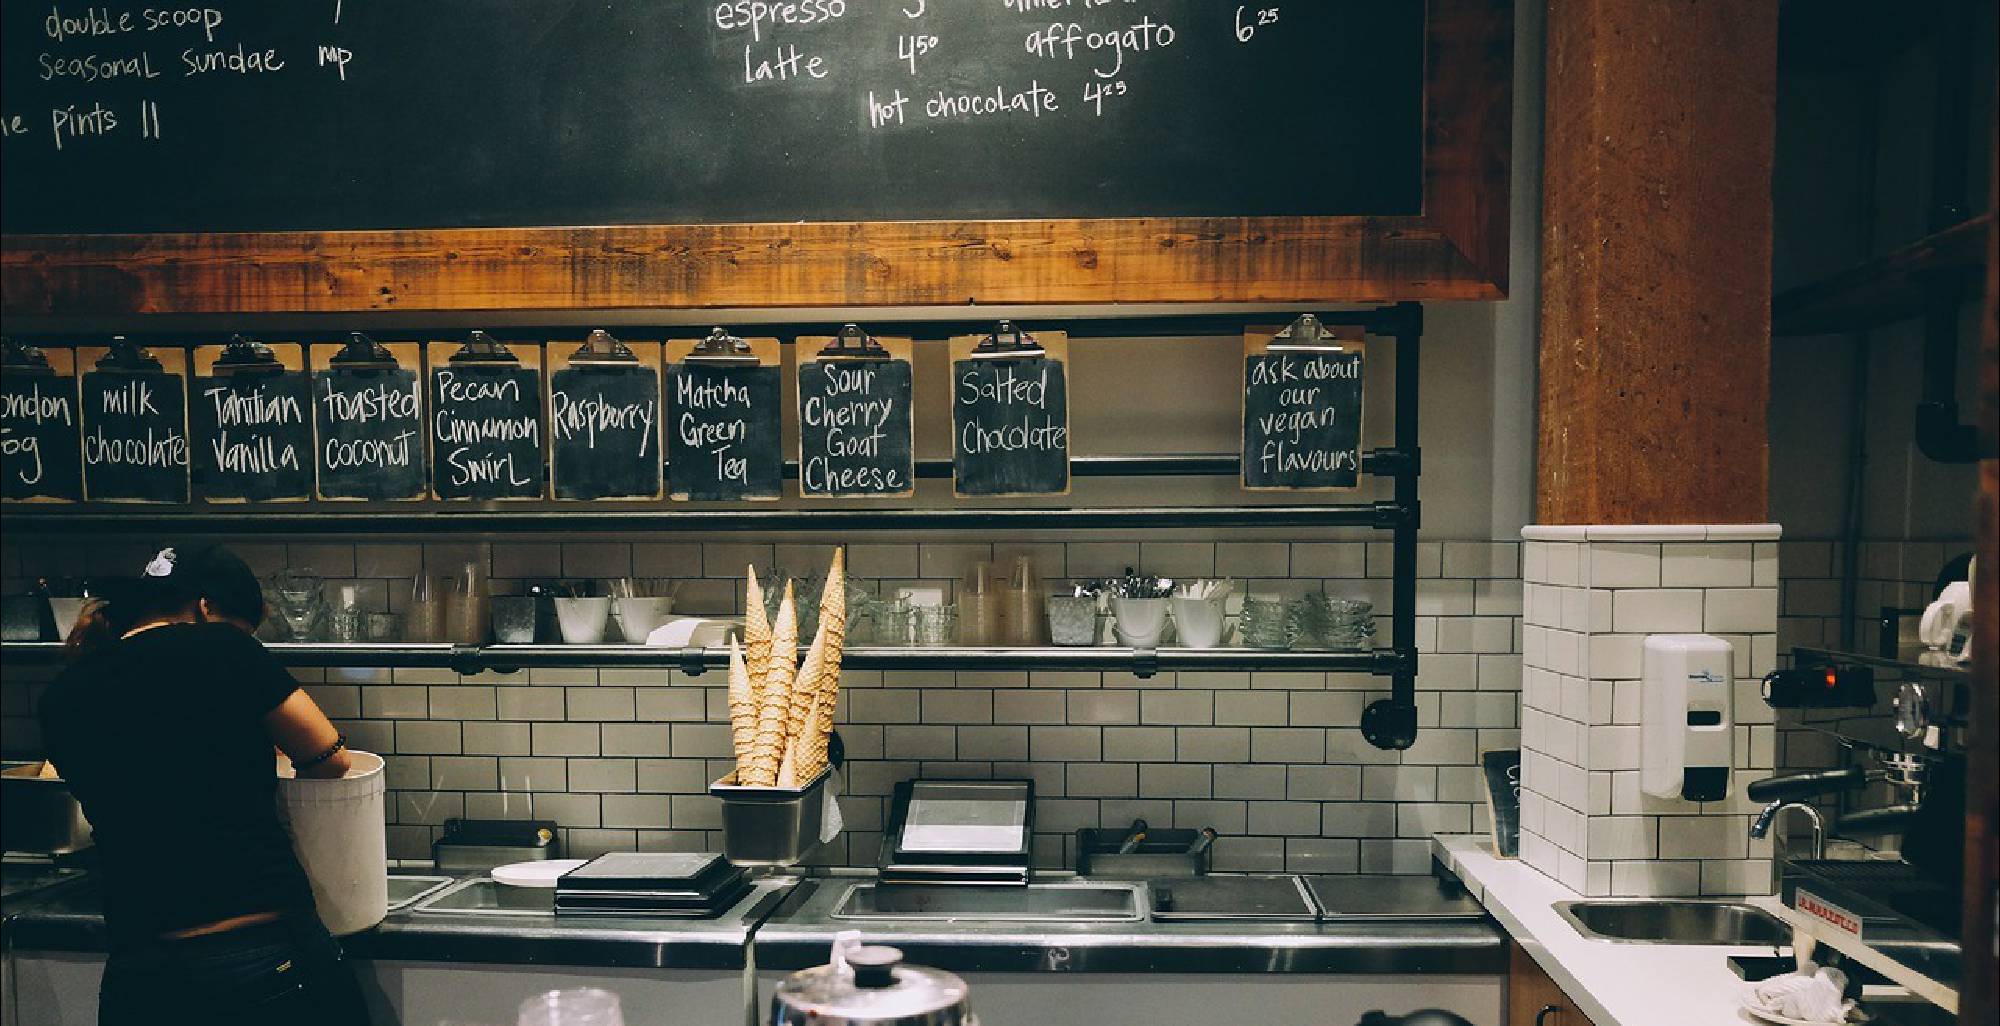 double scoop 7
seasonal sundae mp
pints 11
espresso 3
latte 4⁵⁰
affogato 6²⁵
hot chocolate 4²⁵
milk
chocolate
Tahitian
Vanilla
toasted
coconut
Pecan
Cinnamon
Swirl
Raspberry
Matcha
Green
Tea
Sour
Cherry
Goat
Cheese
Salted
Chocolate
ask about
our
vegan
flavours